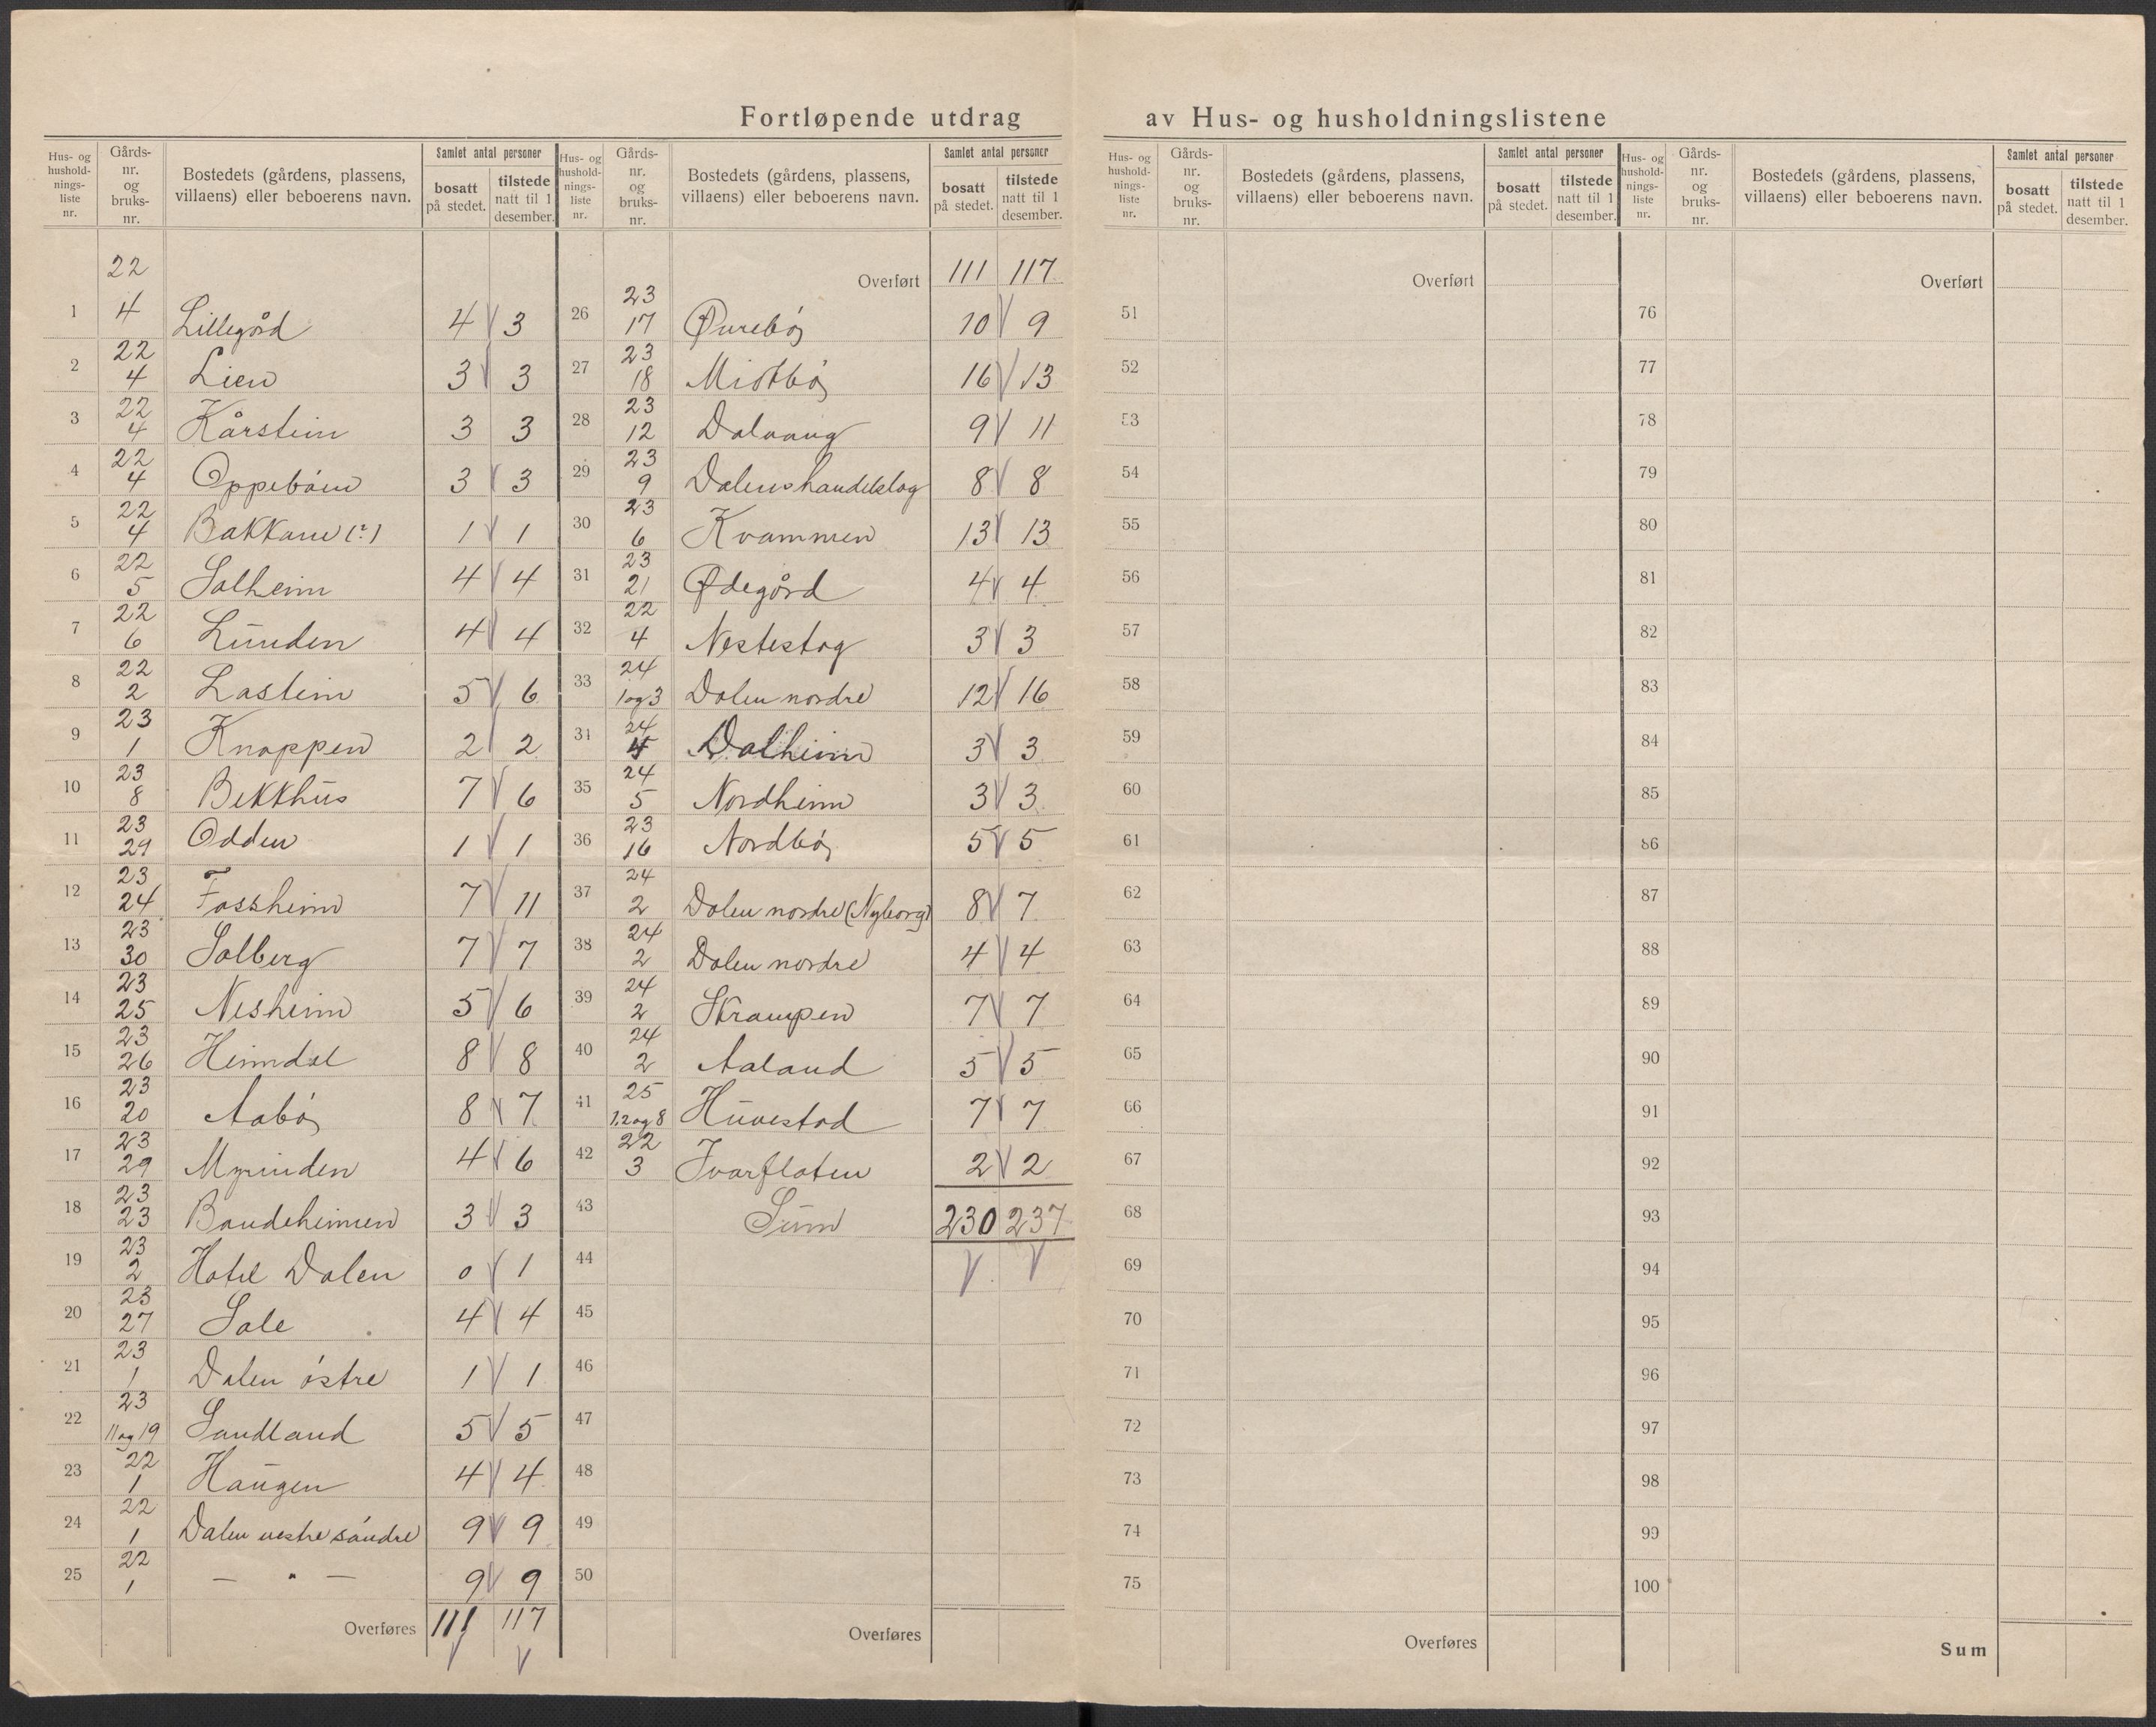 Fortløpende utdrag av Hus- og husholdningslistene
Hus- og hushold-nings-liste nr. | Gårds-nr. og bruks-nr. | Bostedets (gårdens, plassens, villaens) eller beboerens navn. | Samlet antal personer bosatt på stedet. | tilstede natt til 1 desember.
1 22 4 Lillegård 4 3
2 22 4 Lien 3 3
3 22 4 Kårstein 3 3
4 22 4 Oppebøen 3 3
5 22 4 Bakkane (:) 1 1
6 22 5 Solheim 4 4
7 22 6 Lunden 4 4
8 22 2 Lastein 5 6
9 23 1 Knappen 2 2
10 23 8 Bekkhus 7 6
11 23 29 Odden 1 1
12 23 24 Fossheim 7 11
13 23 30 Solberg 7 7
14 23 25 Nesheim 5 6
15 23 26 Heimdal 8 8
16 23 20 Aabø 8 7
17 23 29 Myrinden 4 6
18 23 23 Bondeheimen 3 3
19 23 2 Hotel Dalen 0 1
20 23 27 Sole 4 4
21 23 1 Dalen østre 1 1
22 23 11 og 19 Sandland 5 5
23 22 1 Haugen 4 4
24 22 1 Dalen vestre søndre 9 9
25 22 1 — " — 9 9
Overføres 111 117
Hus- og hushold-nings-liste nr. | Gårds-nr. og bruks-nr. | Bostedets (gårdens, plassens, villaens) eller beboerens navn. | Samlet antal personer bosatt på stedet. | tilstede natt til 1 desember.
Overført 111 117
26 23 17 Øurebø 10 9
27 23 18 Midtbø 16 13
28 23 12 Dalvang 9 11
29 23 9 Dalens handelslag 8 8
30 23 6 Kvammen 13 13
31 23 21 Ødegård 4 4
32 22 4 Nestestog 3 3
33 24 1 og 3 Dalen nordre 12 16
34 24 4 Dalheim 3 3
35 24 5 Nordheim 3 3
36 23 16 Nordbø 5 5
37 24 2 Dalen nordre (Nyborg) 8 7
38 24 2 Dalen nordre 4 4
39 24 2 Skrampen 7 7
40 24 2 Aaland 5 5
41 25 1,2 og 8 Huvestad 7 7
42 22 3 Ivarflaten 2 2
43 Sum 230 237
44
45
46
47
48
49
50
Overføres
Hus- og hushold-nings-liste nr. | Gårds-nr. og bruks-nr. | Bostedets (gårdens, plassens, villaens) eller beboerens navn. | Samlet antal personer bosatt på stedet. | tilstede natt til 1 desember.
Overført
51
52
53
54
55
56
57
58
59
60
61
62
63
64
65
66
67
68
69
70
71
72
73
74
75
Overføres
Hus- og hushold-nings-liste nr. | Gårds-nr. og bruks-nr. | Bostedets (gårdens, plassens, villaens) eller beboerens navn. | Samlet antal personer bosatt på stedet. | tilstede natt til 1 desember.
Overført
76
77
78
79
80
81
82
83
84
85
86
87
88
89
90
91
92
93
94
95
96
97
98
99
100
Sum